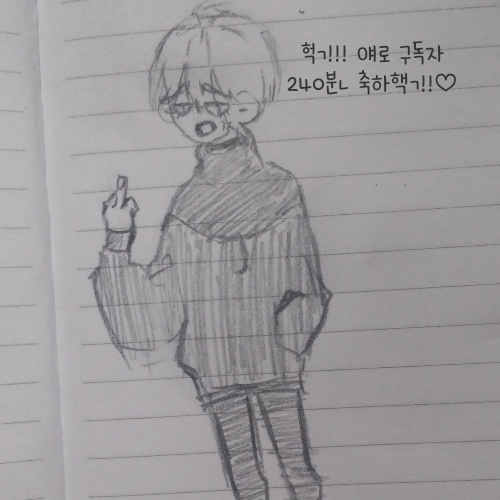 헉ㄱ!!! 얘로 구독자
240분ㄴ 축하핵ㄱ!!♡